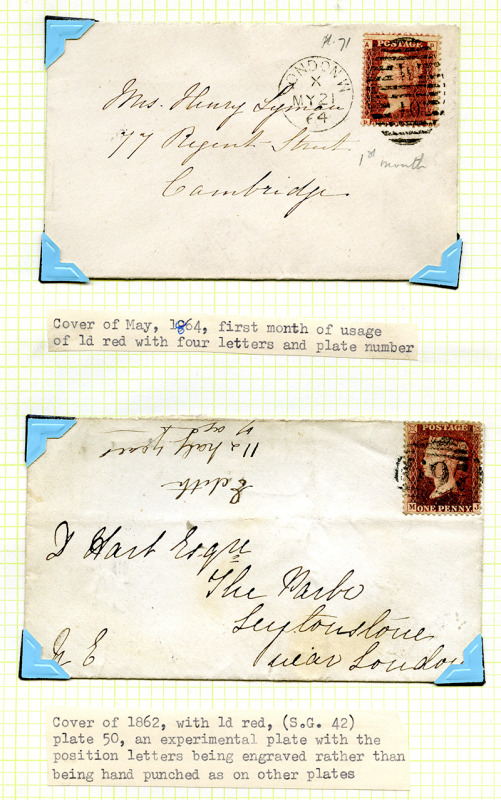 Pl. 71
POSTAGE
LONDON.W
X
MY 21
64
Mrs. Henry Lyman
77 Regent Street
Cambridge
1st month
Cover of May, 1864, first month of usage
of 1d red with four letters and plate number
11 & half years
Edith
POSTAGE
ONE PENNY
M J
D Hart Esqre
The
Leytonstone
near London
N E
Cover of 1862, with 1d red, (S.G. 42)
plate 50, an experimental plate with the
position letters being engraved rather than
being hand punched as on other plates